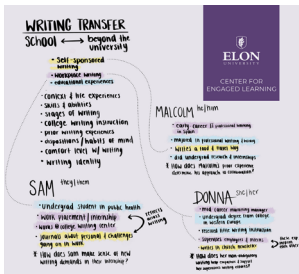 WRITING TRANSFER
SCHOOL ⟷ beyond the
university
• Self-sponsored
writing
• Workplace writing
• educational experiences
• Context & life experiences
• Skills & abilities
• Stages of writing
• College writing instruction
• prior writing experiences
• dispositions/habits of mind
• Comfort level w/ writing
• Writing identity
ELON
UNIVERSITY
CENTER FOR
ENGAGED LEARNING
MALCOLM he/him
• early career
in
• majored in professional writing
• writes a
• did undergrad research & internships
* How does Malcolm's prior experience
his approach to collaboration?
SAM they/them
• Undergrad student in public health
• Work placement/internship
• Works @ college writing center
• journals about personal & challenges
going on in work
* How does Sam make sense of new
writing demands in their internship?
across
writing
DONNA she/her
• mid career marketing manager
• undergrad degree from college
in western Europe
• received little writing instruction
• Supervises employees & interns
• Writes in church newsletter
* How does her own
writing
her supervise writing